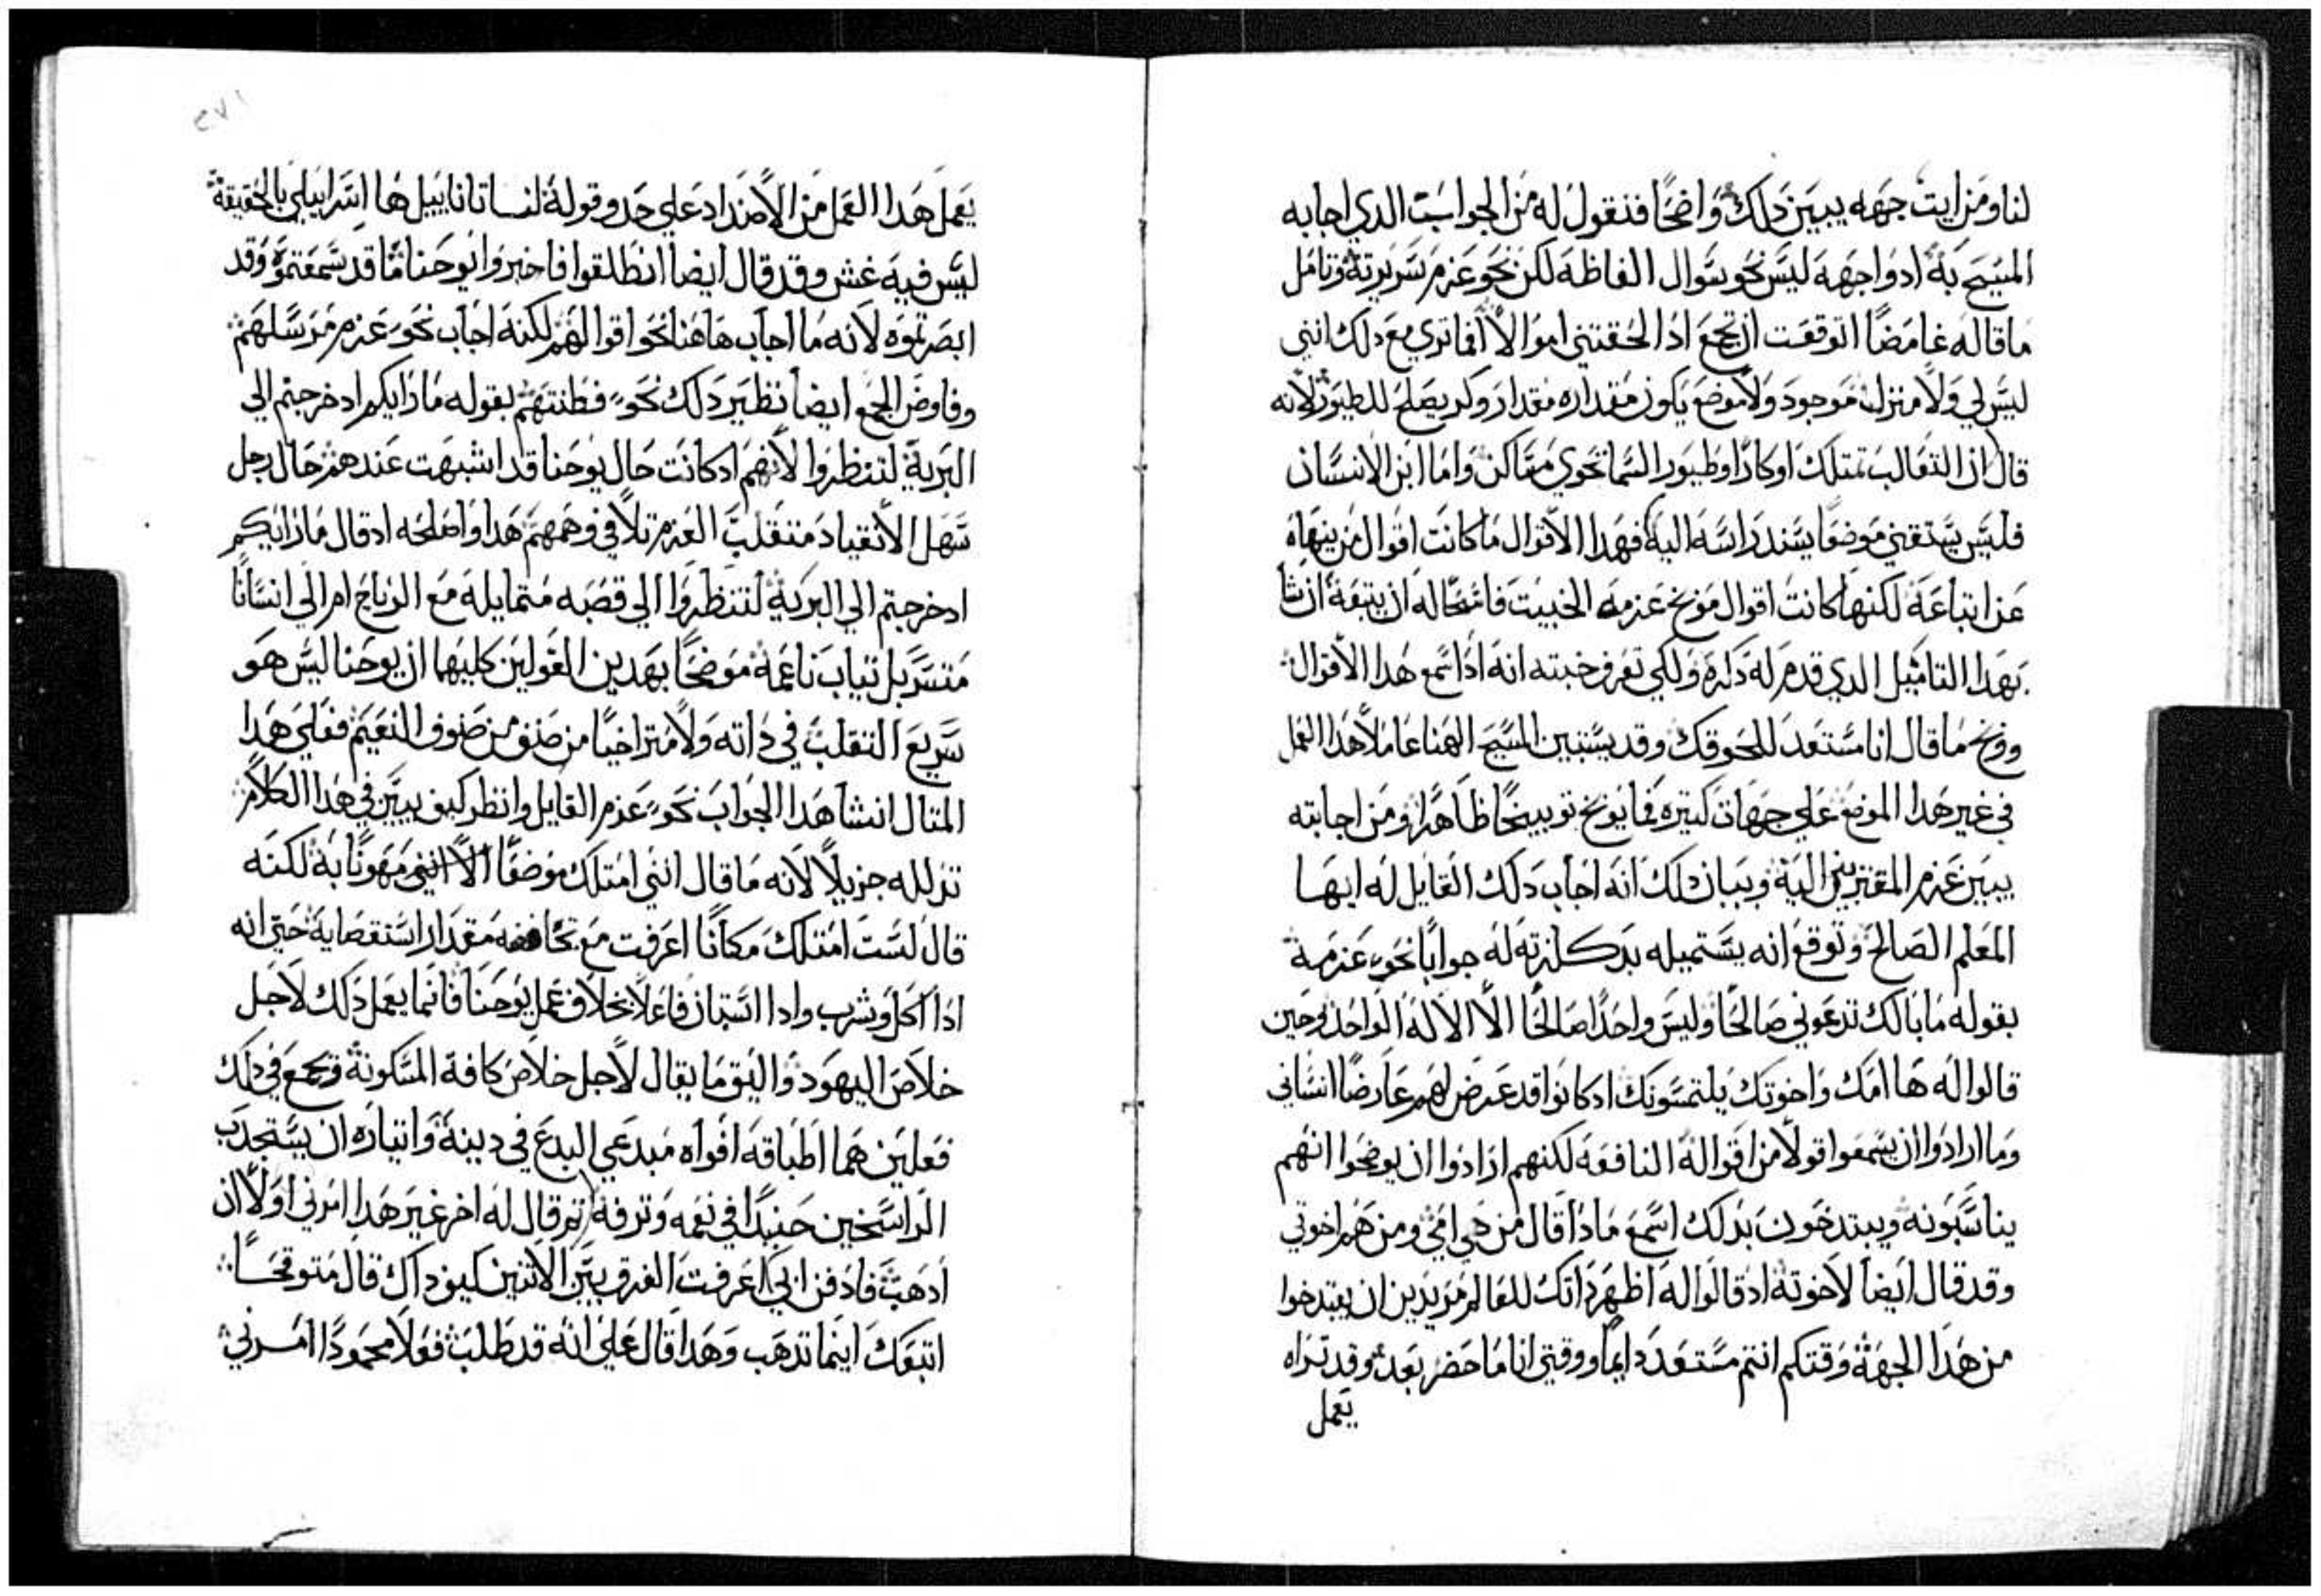 لنا ومن ايت جهه يبين دلك واضحًا فنقول له من الجواب الدي اجابه
المسيح به ادواجهه ليس نحو سوال الفاظه لكن نحو عزم سريرته وتامل
ما قاله غامضًا اتوقعت ان تجمع ادا لحقتني اموالا افما تري مع دلك انني
ليس لي ولا منزل موجود ولا موضع يكون مقداره مقدار وكر يصلح للطيور لانه
قال ان التعالب تمتلك اوكارًا وطيور السما تحوي مساكن واما ابن الانسان
فليس يستقني موضعًا يسند راسه اليه فهدا الاقوال ما كانت اقوال من ينهاه
عن اتباعه لكنها كانت اقوال موبخ عزمه الخبيث فاسحًا له ان يتبعه ان شا
بهدا التامثيل الدي قدم له داره ولكي تعرف خبته انه ادا سمع هدا الاقوال
ووبخ ما قال انا مستعد للحوقك وقد يستبين المسيح الهنا عاملا هدا العمل
في غير هدا الموضع علي جهات كتيره فما يوبخ توبيخًا ظاهرًا ومن اجابته
يبين عزم المقتربين اليه وبيان دلك انه اجاب دلك القايل له ايها
المعلم الصالح وتوقع انه يستميله بدكلزته له جوابًا نحو عزمه
بقوله ما بالك تدعوني صالحًا وليس واحدًا صالحًا الا الاله الواحد وحين
قالوا له ها امك واخوتك يلتمسونك ادكانوا قد عرض لهم عارضًا انساني
وما ارادوا ان يسمعوا قولا من اقواله النافعه لكنهم ارادوا ان يوضحوا انهم
يناسبونه ويبتدخون بدلك اسمع مادا قال من هي امي ومن هم اخوتي
وقد قال ايضا لاخوته اد قالوا له اظهر داتك للعالم مريدين ان يبتدخوا
من هدا الجهه وقتكم انتم مستعد دايمًا ووقتي انا ما حضر بعد وقد تراه
يعمل
٢٧١
يعمل هدا العمل من الاضداد علي حد وقوله لنساتانابيل ها اسراييلي بالحقيقة
ليس فيه غش وقد قال ايضا انطلقوا فاخبروا يوحنا ما قد سمعتموه وقد
ابصرتموه لانه ما اجاب هاهنا نحو اقوالهم لكنه اجاب نحو عزم مرسلهم
وفاوض الجمع ايضا نظير دلك نحو فطنتهم بقوله مادا رايكم ادخرجتم الي
البرية لتنظروا لانهم ادكانت حال يوحنا قد اشبهت عندهم حال رجل
سهل الانقياد متنقلب العزم تلافي وهمهم هدا واصلحه ادقال ما رايكم
ادخرجتم الي البريه لتنظروا الي قصبه متمايله مع الرياح ام الي انسانًا
متسربل تياب ناعمه موضحًا بهدين القولين كليهما ان يوحنا ليس هو
سريع التقلب في داته ولا متراخيًا من صنف من صنوف النعيم فعلي هدا
المتال انشا هدا الجواب نحو عزم القايل وانظر كيف يبين في هدا الكلام
تدلله جزيلًا لانه ما قال انني امتلك موضعًا الا انني مهونًا به لكنه
قال لست امتلك مكانًا اعرفت مع مقدار استقصايه حتي انه
ادا اكل وشرب وادا استبان فاعلا بخلاف عمل يوحنا فانما يعمل دلك لاجل
خلاص اليهود واليق ما يقال لاجل خلاص كافة المسكونة ويجمع في دلك
فعلين هما اطباقه افواه مبدعي البدع في دينه وانتياره ان يستجدب
الراسخين حنيدًا في نعمه وترفه تم قال له اخر غير هدا امرني اولا ان
ادهب فادفن ابي اعرفت الفرق بين الاتنين كيف داك قال متوقحًا
اتبعك اينما تدهب وهدا قال علي انه قد طلب فعلا محمودًا امرني